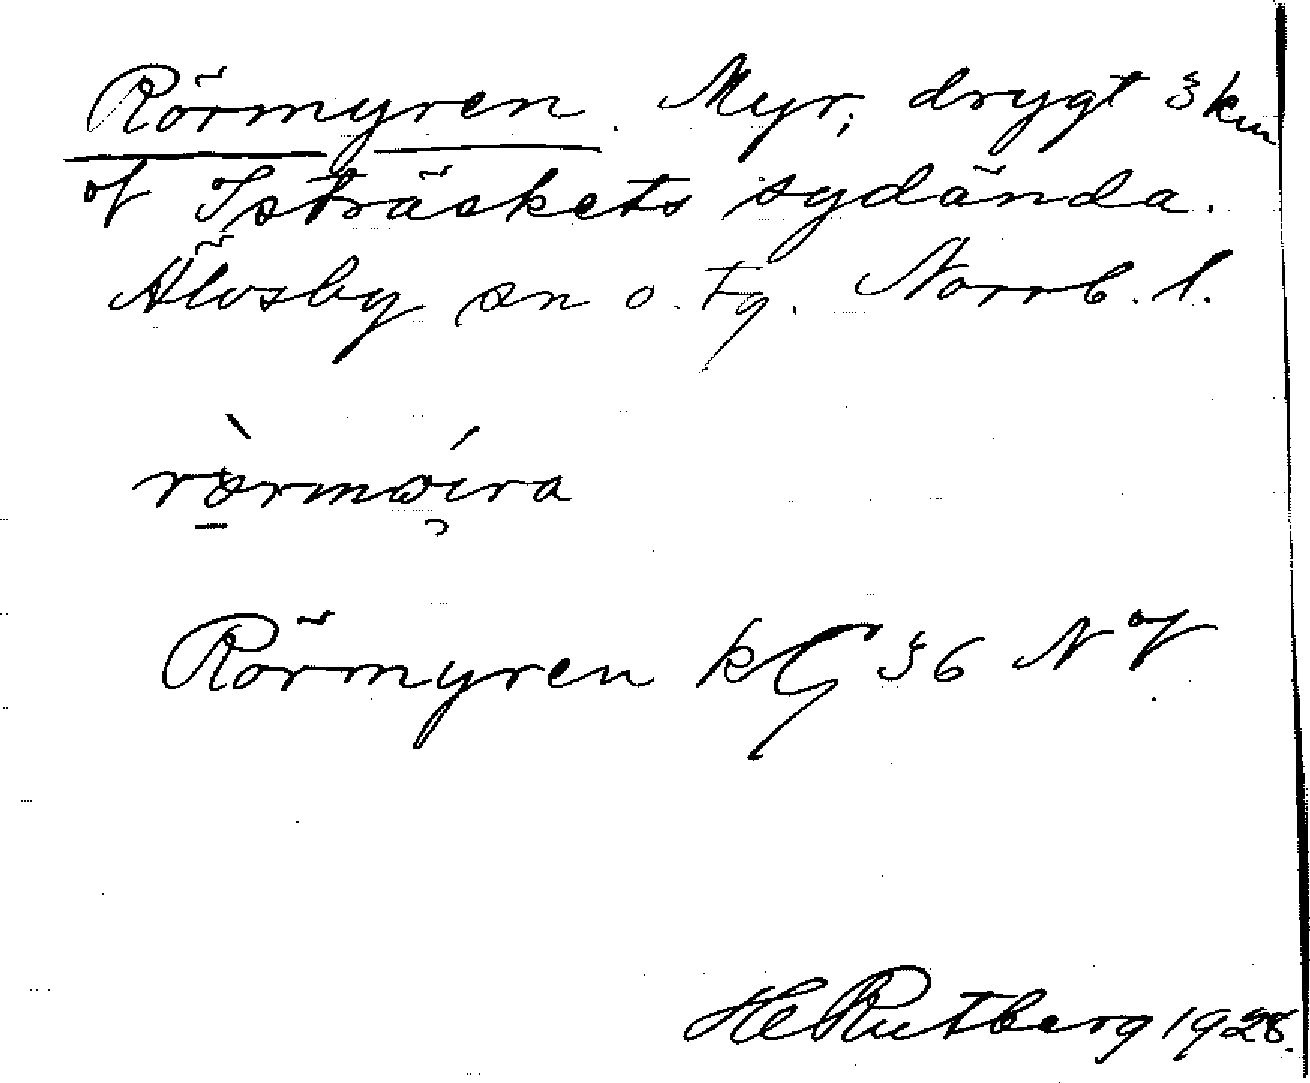 Rörmyren. Myr, drygt 3 km
of Isträskets sydända.
Älvsby sn o. tg. Norrb. l.
rörmöira
Rörmyren kG 36 NV
HeRutberg 1928.